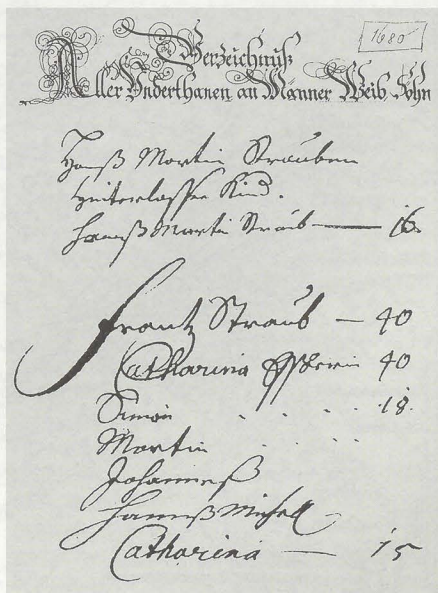 1680
Verzeichnuß
Aller Underthanen an Männer Weib Söhn
Hanß Martin Strauben
hinterlassne Kind.
Hannß Martin Straub — 16.
Frantz Straub — 40
Catharina 40
Simon . . . . 18.
Martin . . . .
Johanneß
Hannß Michell
Catharina — 15